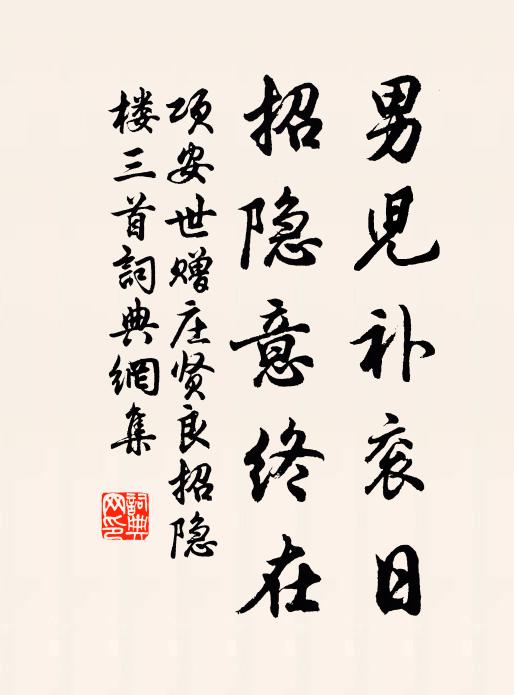 男兒补衮日
招隐意终在
项安世赠庄贤良招隐
楼三首詞典網集
詞典网印